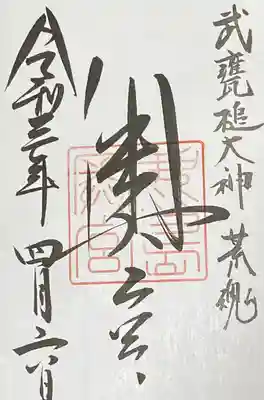 武甕槌大神 荒魂
奥宮
令和三年 四月六日